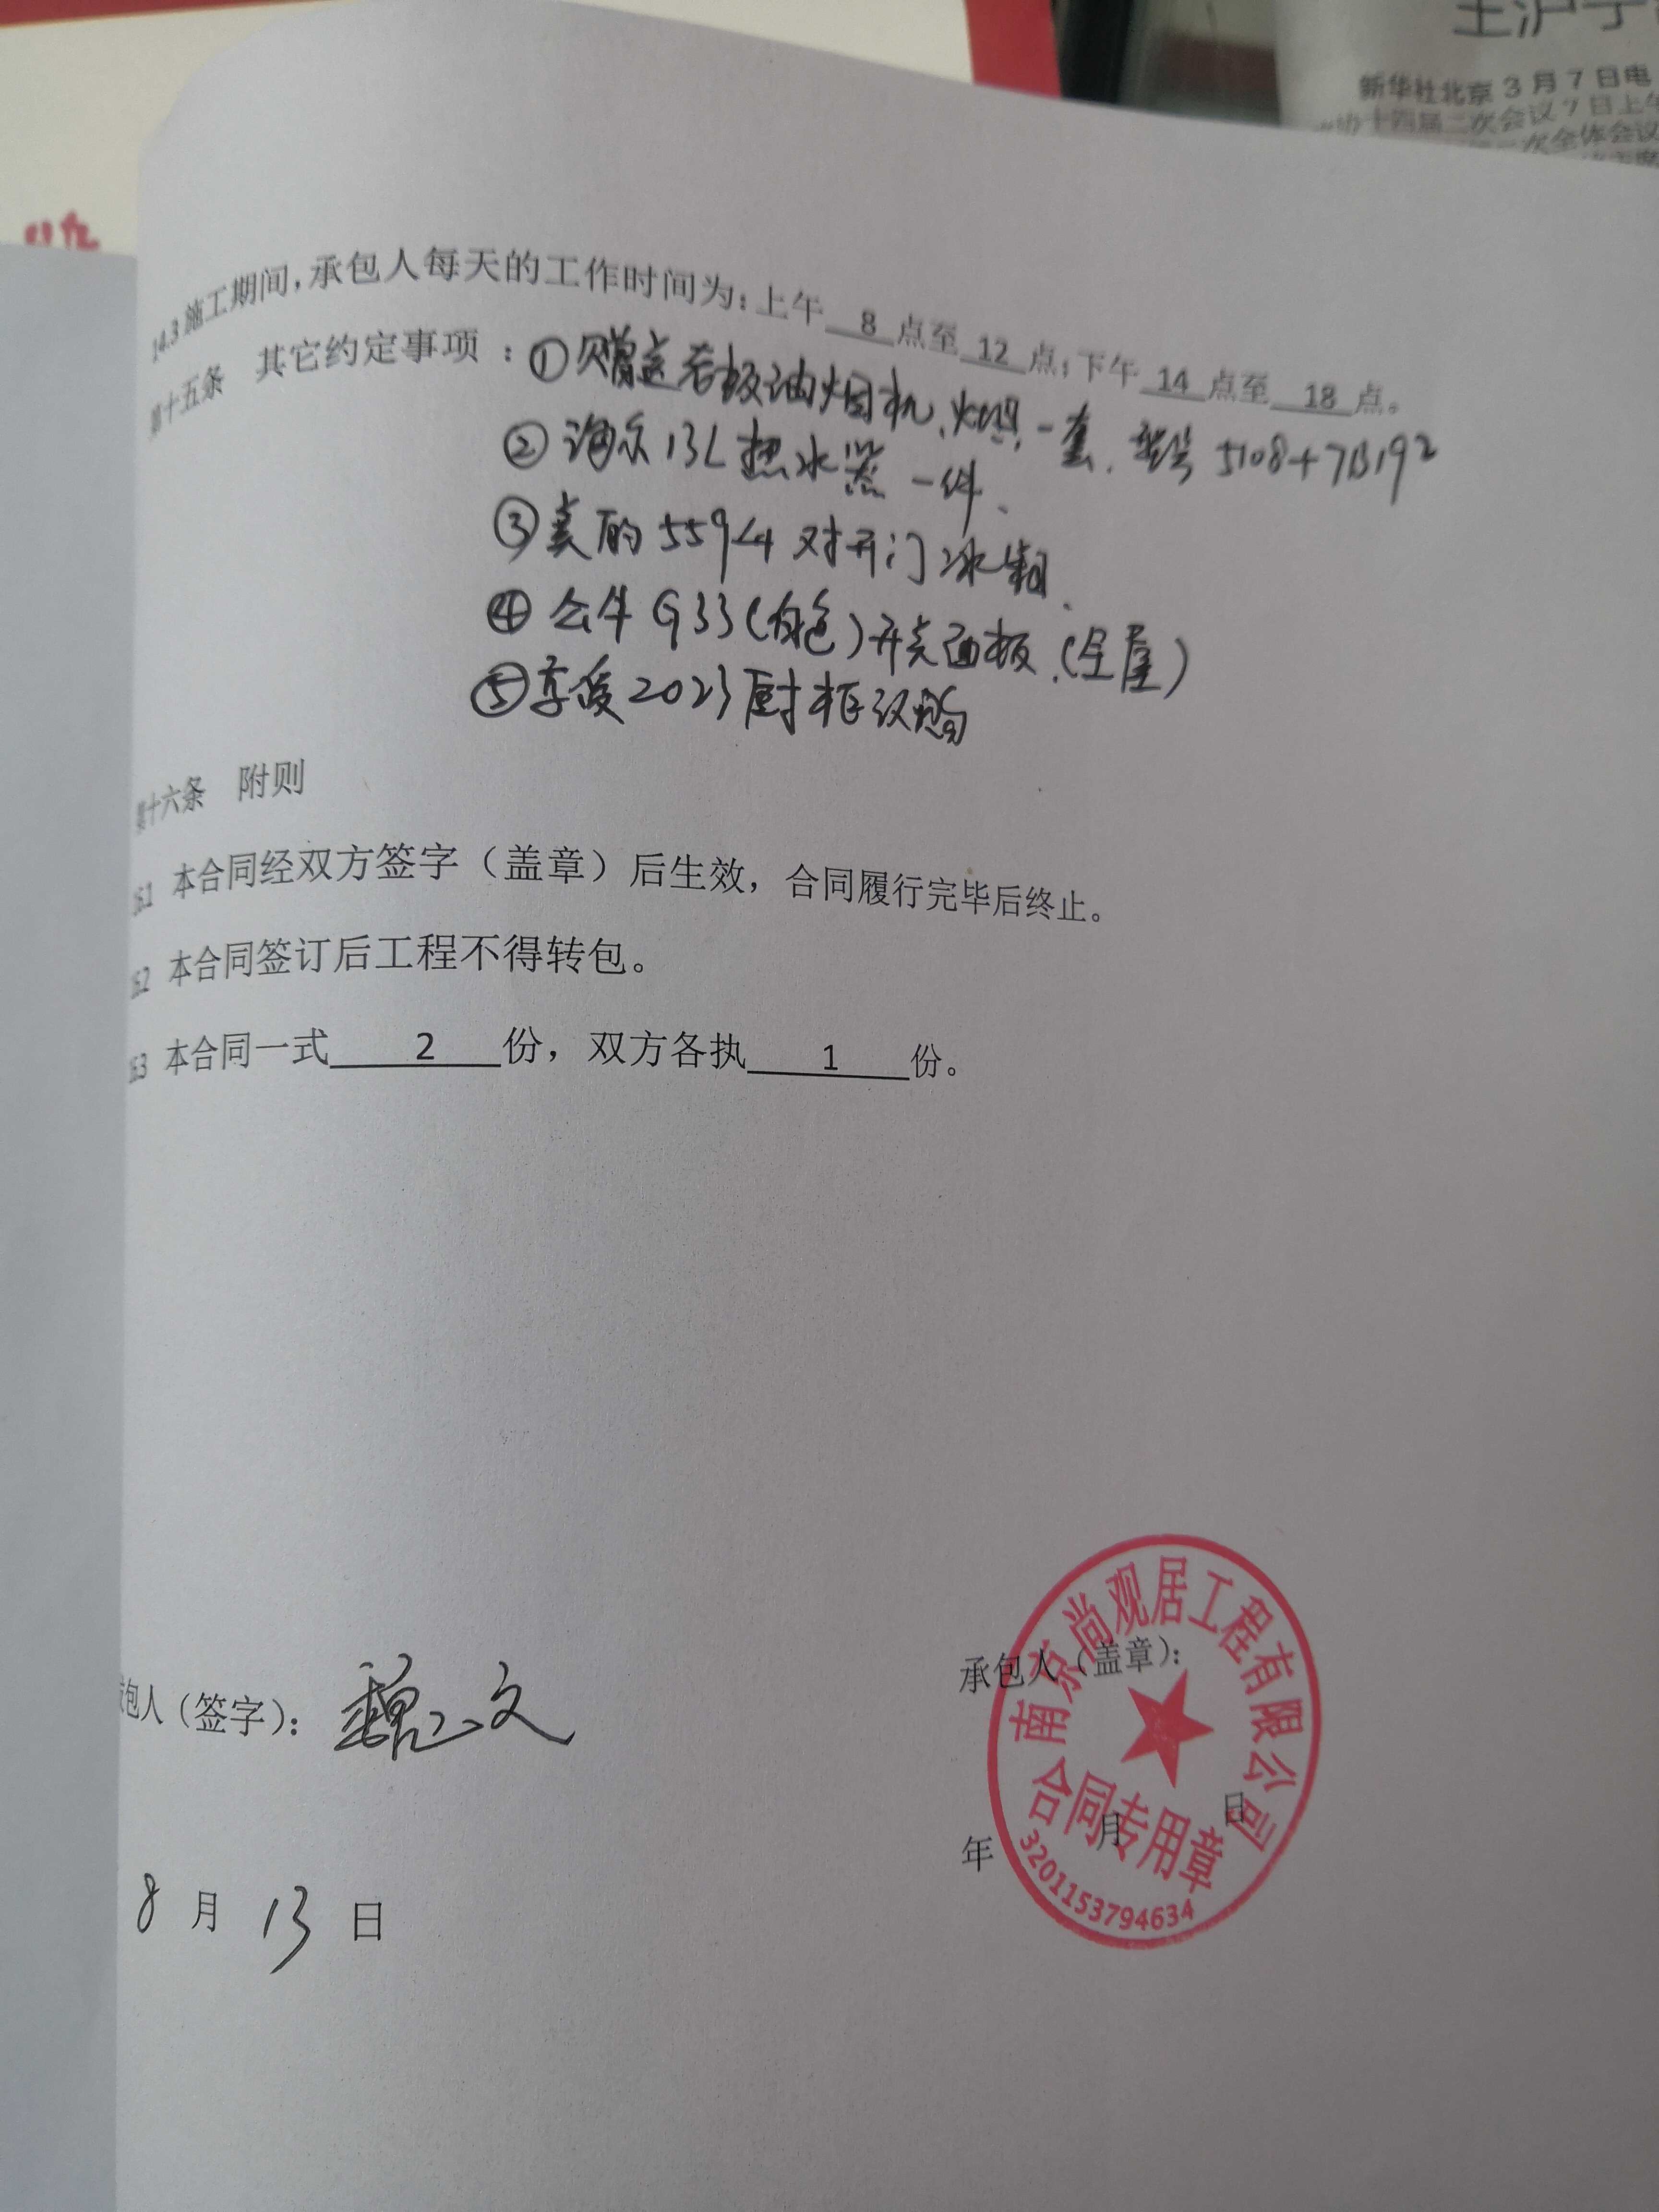 王沪宁
新华社北京3月7日电
协十四届二次会议7日上午
次全体会议
14.3 施工期间，承包人每天的工作时间为：上午 8 点至 12 点；下午 14 点至 18 点。
第十五条 其它约定事项：①赠送老板油烟机、灶具一套、型号5108+7B192
②海尔13L热水器一件、
③美的559L 对开门冰箱、
④公牛G33(白色)开关面板、(全屋)
⑤享受2023橱柜
第十六条 附则
16.1 本合同经双方签字（盖章）后生效，合同履行完毕后终止。
16.2 本合同签订后工程不得转包。
16.3 本合同一式 2 份，双方各执 1 份。
包人（签字）：魏 文
承包人（盖章）：
8 月 13 日
年 月 日
南京尚观居工程有限公司
合同专用章
3201153794634